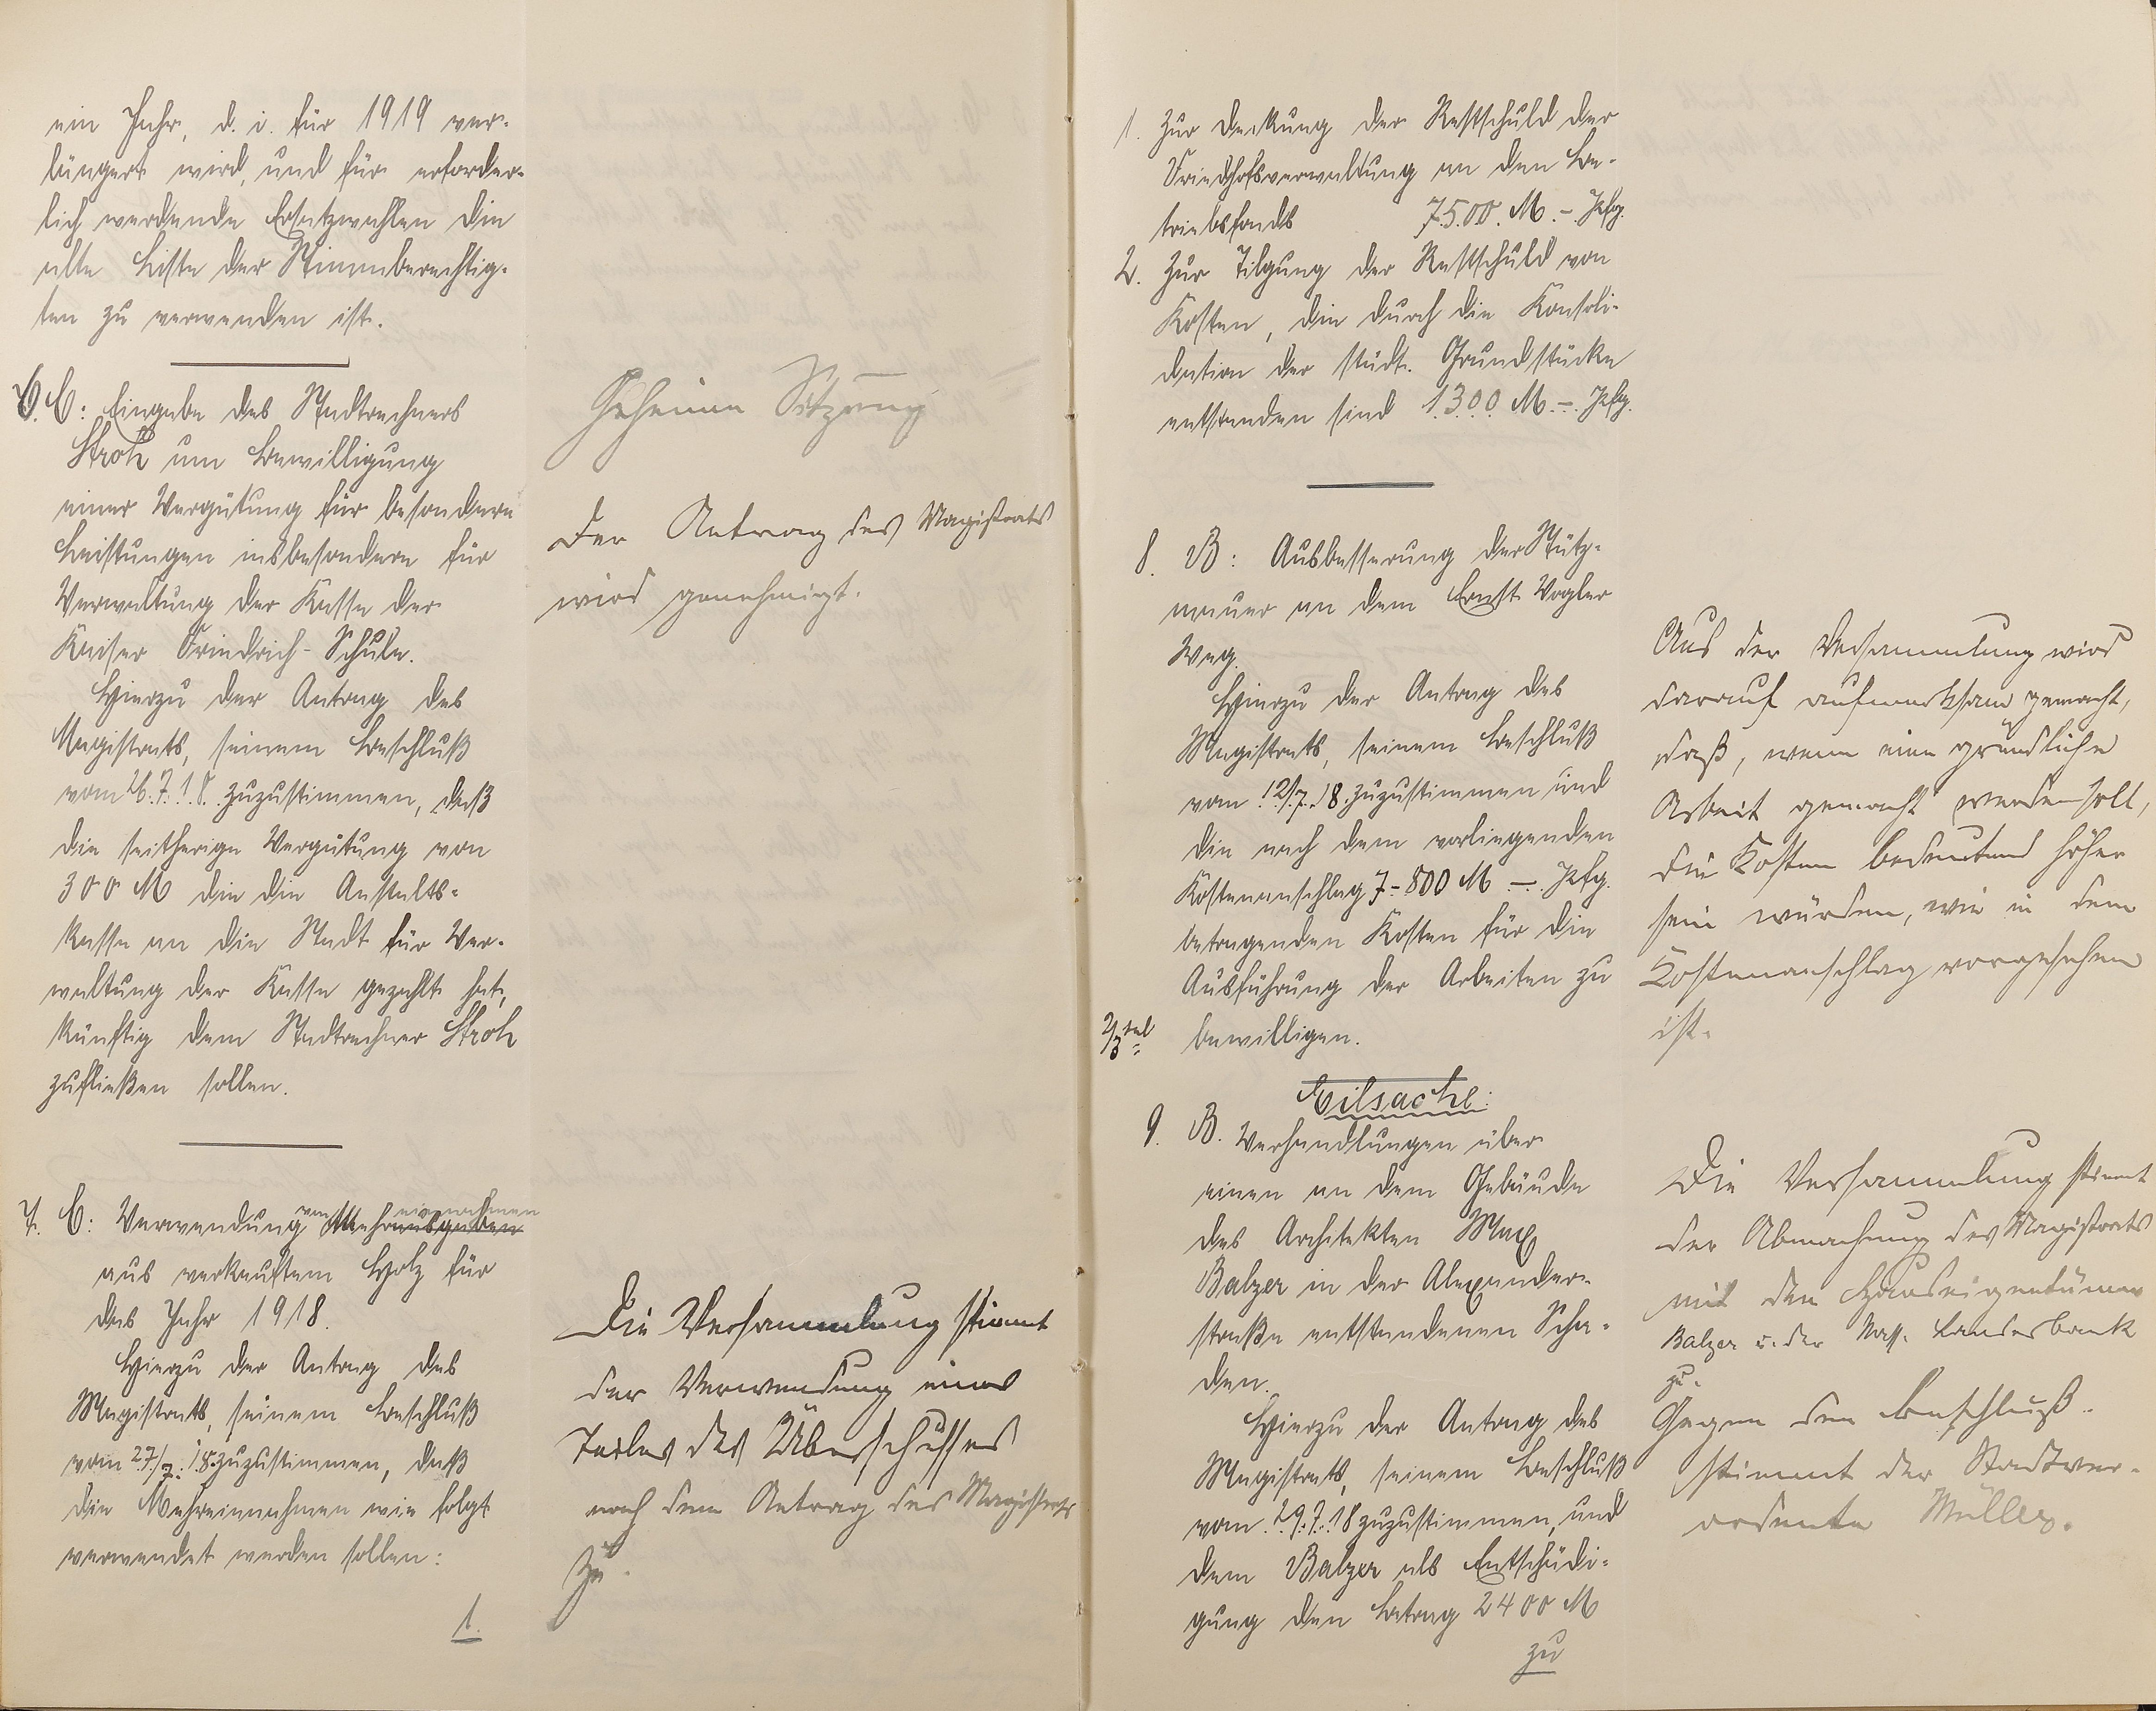 ein Jahr, d. i. für 1919 ver-
längert wird, und für erforder-
lich werdende Ersatzwahlen die
alte Liste der Stimmberechtig-
ten zu verwenden ist.
6. C: Eingabe des Stadtrechners
Stroh um Bewilligung
einer Vergütung für besondere
Leistungen insbesondere für
Verwaltung der Kasse der
Kaiser Friedrich-Schule.
Hierzu der Antrag des
Magistrats, seinem Beschluß
vom 26.7.18. zuzustimmen, daß
die seitherige Vergütung von
300 M die die Anstalts-
kasse an die Stadt für Ver-
waltung der Kasse gezahlt hat,
künftig dem Stadtrechner Stroh
zufließen sollen.
Geheime Sitzung
Der Antrag des Magistrats
wird genehmigt.
7. C: Verwendung von Mehrausgaben einnahmen
aus verkauftem Holz für
das Jahr 1918.
Hierzu der Antrag des
Magistrats, seinem Beschluß
vom 27/7.18 zuzustimmen, daß
die Mehreinnahmen wie folgt
verwendet werden sollen:
1.
Die Versammlung stimmt
der Verwendung eines
Teiles des Überschusses
nach dem Antrag des Magistrats
zu.
1. Zur Deckung der Restschuld der
Friedhofsverwaltung an den Be-
triebsfonds 7500 M.- Pfg.
2. Zur Tilgung der Restschuld von
Kosten, die durch die Konsoli-
dation der städt. Grundstücke
entstanden sind 1300 M.- Pfg.
8. B: Ausbesserung der Stütz-
mauer an dem Ernst Vogler
Weg.
Hierzu der Antrag des
Magistrats, seinem Beschluß
vom 12/7.18. zuzustimmen und
die nach dem vorliegenden
Kostenanschlag 7-800 M - Pfg.
betragenden Kosten für die
Ausführung der Arbeiten zu
2/3tel bewilligen.
Aus der Versammlung wird
darauf aufmerksam gemacht,
daß, wenn eine gründliche
Arbeit gemacht werden soll,
die Kosten bedeutend höher
sein würden, wie in dem
Kostenanschlag vorgesehen
ist.
Eilsache:
9. B. Verhandlungen über
einen an dem Gebäude
des Architekten Max
Balzer in der Alexander-
straße entstandenen Scha-
den.
Hierzu der Antrag des
Magistrats, seinem Beschluß
vom 29.7.18 zuzustimmen, und
dem Balzer als Entschädi-
gung den Betrag 2400 M
zu
Die Versammlung stimmt
der Abmachung des Magistrats
mit den Hauseigentümer
Balzer u. der Nass. Landesbank
zu.
Gegen den Beschluß
stimmt der Stadtver-
ordnete Müller.